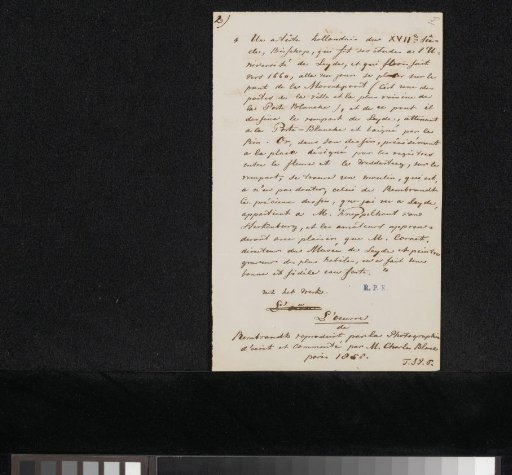 2)
" Un artiste hollandais du XVIIe siè-
cle, Bisschop, qui fit ses études à l'U-
niversité de Leyde, et qui florissait
vers 1660, alla un jour se placer sur le
pont de la (c'est une des
portes de la ville et la plus voisine de
la Porte Blanche), et de ce pont il
dessina le rempart de Leyde, attenant
à la Porte-Blanche et baigné par le
Rhin. Or, dans son dessin, précisément
à la place désigné par les registres
entre le fleuve et le Weddesteeg, sur le
rempart, se trouve un moulin, qui est,
à n'en pas douter, celui de Rembrandt.
Ce précieux dessin, que j'ai vu à Leyde,
appartient à M. van
et les amateurs appren-
dront avec plaisir, que M. Cornet,
directeur du Musée de Leyde et peintre
graveur des plus habiles, en a fait une
bonne et fidèle eau forte. "
uit het werk.
R.P.K.
L'oeuvre
de
Rembrandt reproduit par la Photographie
décrit et commenté par M. Charles Blanc
paris 1858.